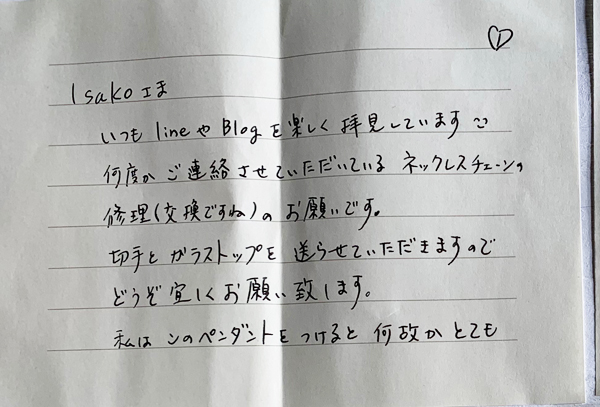 ①
Isakoさま
いつもlineやBlogを楽しく拝見しています
何度かご連絡させていただいているネックレスチェーンの
修理(交換ですね)のお願いです。
切手とガラストップを送らせていただきますので
どうぞ宜しくお願い致します。
私はこのペンダントをつけると何故かとても